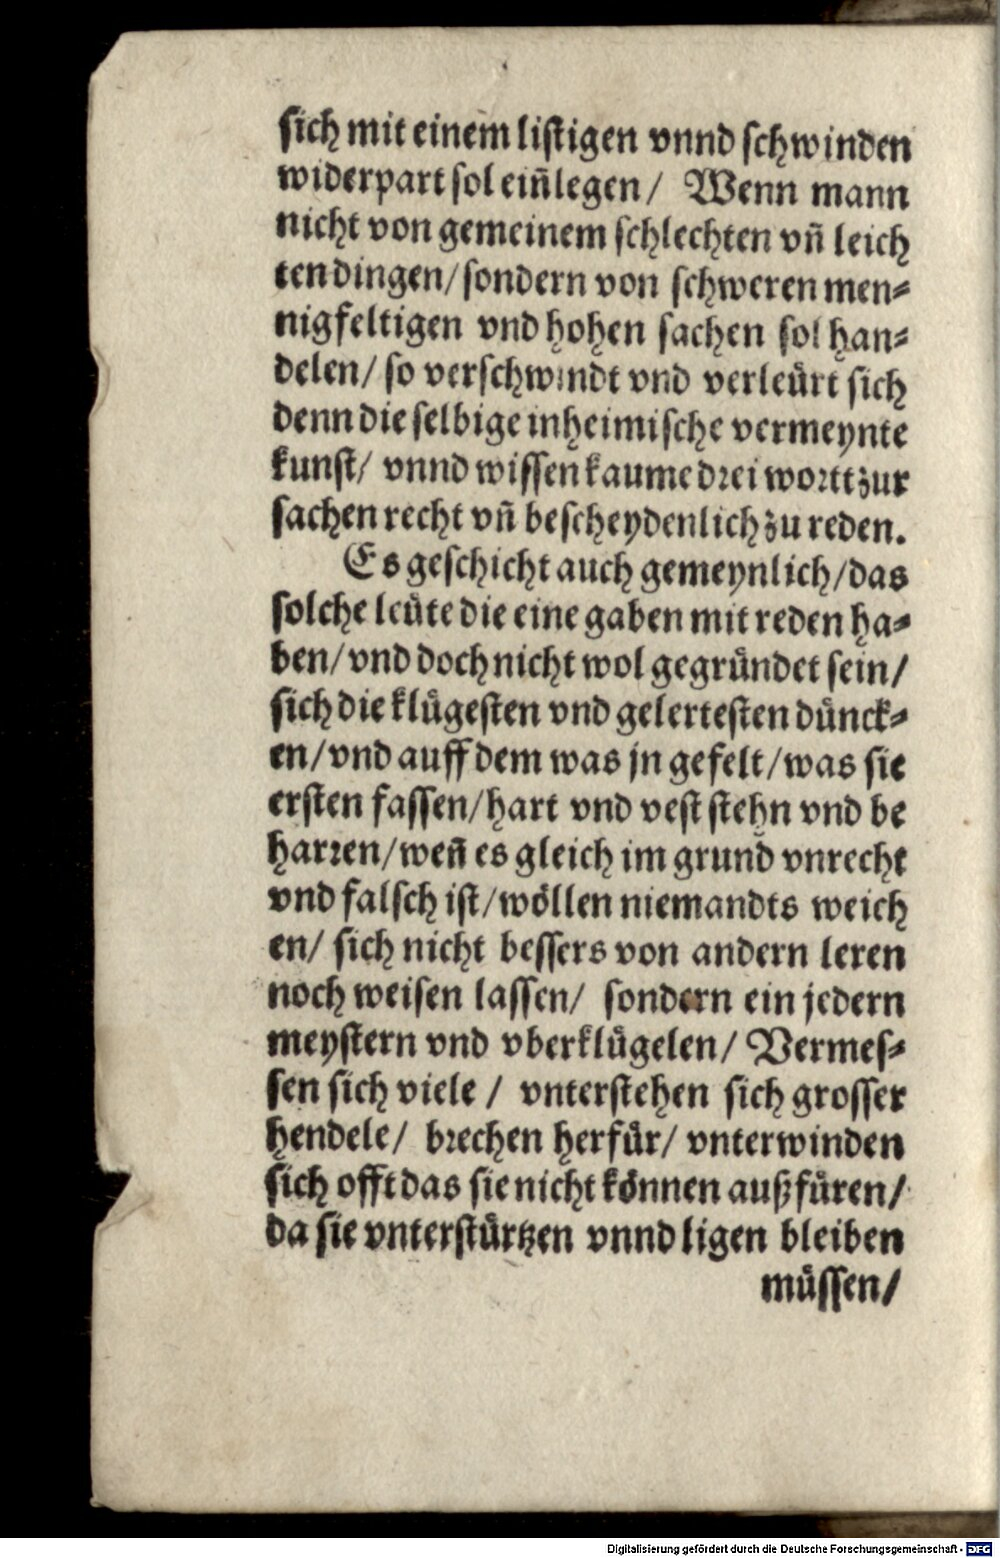 sich mit einem listigen vnnd schwinden
widerpart sol eiñlegen / Wenn mann
nicht von gemeinem schlechten vñ leich
ten dingen/ sondern von schweren men-
nigfeltigen vnd hohen sachen sol han-
delen/ so verschwindt vnd verleürt sich
denn die selbige inheimische vermeynte
kunst/ vnnd wissen kaume drei wortt zur
sachen recht vñ bescheydenlich zu reden.
Es geschicht auch gemeynlich/das
solche leüte die eine gaben mit reden ha-
ben/ vnd doch nicht wol gegründet sein/
sich die klügesten vnd gelertesten dünck-
en/ vnd auff dem was jn gefelt/was sie
ersten fassen/hart vnd vest stehn vnd be
harren/weñ es gleich im grund vnrecht
vnd falsch ist/wöllen niemandts weich
en/ sich nicht bessers von andern leren
noch weisen lassen/ sondern ein jedern
meystern vnd vberklügelen/ Vermes-
sen sich viele / vnterstehen sich grosser
hendele/ brechen herfür/ vnterwinden
sich offt das sie nicht können außfüren/
da sie vnterstürtzen vnnd ligen bleiben
müssen/
Digitalisierung gefördert durch die Deutsche Forschungsgemeinschaft - DFG